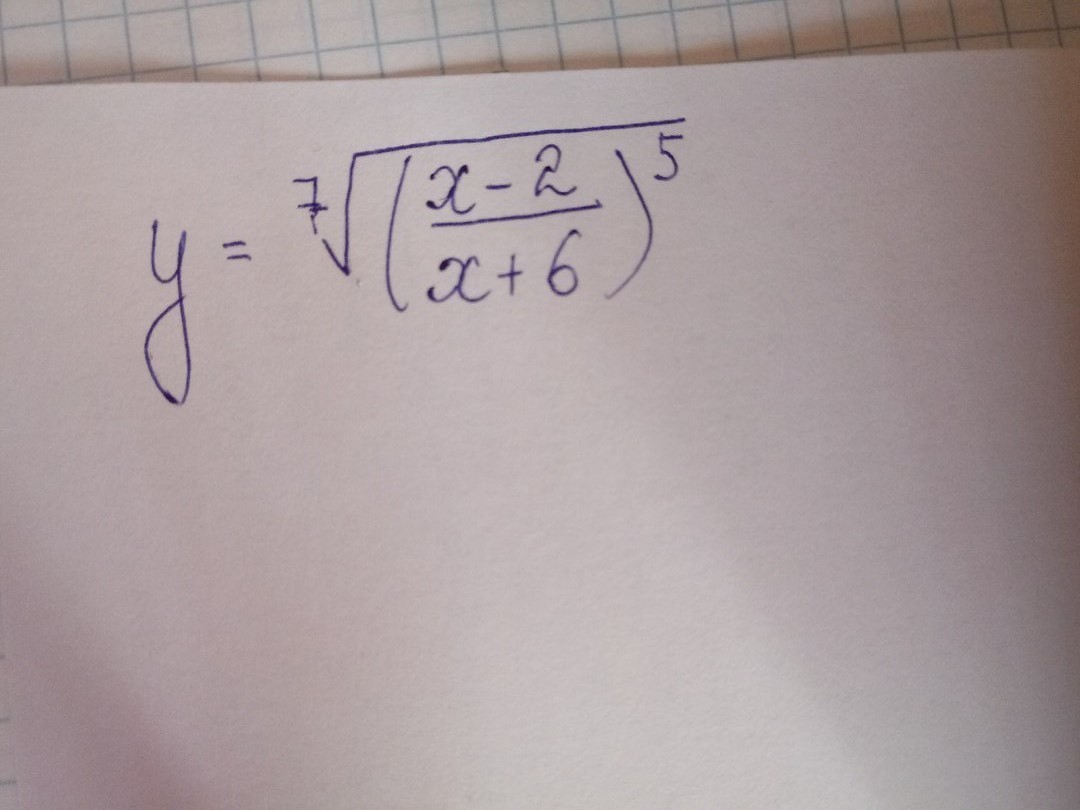 y = \sqrt[7]{\left(\frac{x-2}{x+6}\right)^5}